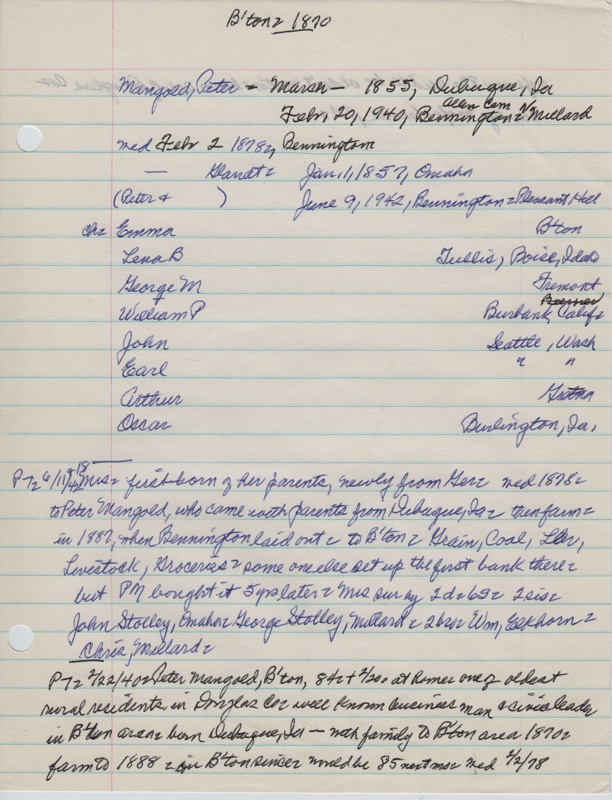 B'ton 1870
Mangold, Peter - March - 1855, Dubuque, Ia
Allen Cem
Febr, 20, 1940, Bennington Millard
med Febr 2 1878, Bennington
— Glandt Jan, 1, 1857, Omaha
(Peter & ) June 9, 1942, Bennington Pleasant Hill
Ch Emma B'ton
Lena B Tullis, Boise, Idaho
George M Fremont
William P Burbank, Calif
John Seattle, Wash
Earl " "
Arthur Gretna
Oscar Burlington, Ia,
P72 6/11 & 18/42 Mrs first born of her parents, newly from Ger med 1878
to Peter Mangold, who came with parents from Dubuque, Ia then farm
in 1887, when Bennington laid out to B'ton Grain, Coal, Lbr,
Livestock, Groceries some one else set up the first bank there
but PM bought it 5 yrs later Mrs sur by 2d 6s 2sis
John Stolley, Omaha George Stolley, Millard 2 brs Wm, Elkhorn
Chris, Millard
P72 2/22/40 Peter Mangold, B'ton, 84 + 2/20 at home one of oldest
rural residents in Douglas Co well known business man & civic leader
in B'ton area born Dubuque, Ia — with family to B'ton area 1870
farm to 1888 in B'ton since would be 85 next mo med 2/2/78